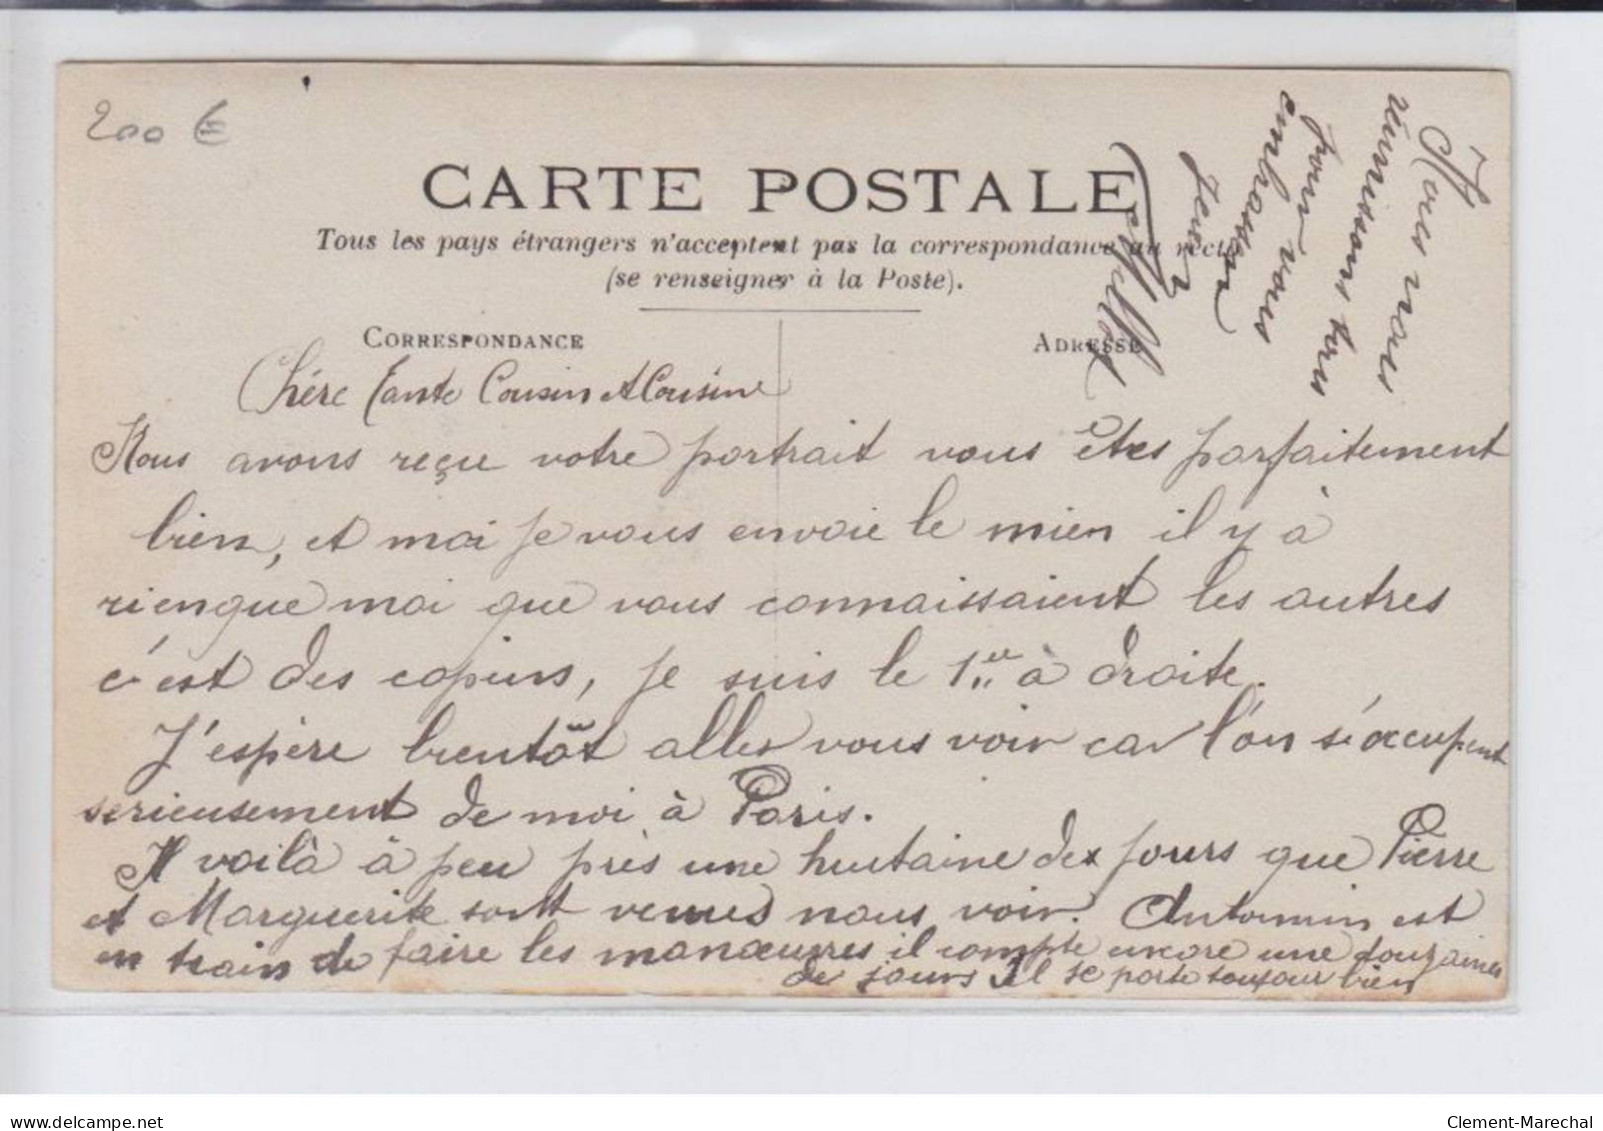 200 €
CARTE POSTALE
Tous les pays étrangers n'acceptent pas la correspondance au recto
(se renseigner à la Poste).
CORRESPONDANCE
ADRESSE
Chére Tante Cousin et Cousine
Nous avons reçu votre portrait vous êtes parfaitement
bien, et moi je vous envoie le mien il y à
rienque moi que vous connaissaient les autres
c'est des copins, je suis le 1er à droite.
J'espère bientôt aller vous voir car l'on s'occupent
serieusement de moi à Paris.
Il voilà à peu près une huitaine de jours que Pierre
et Marguerite sont venus nous voir. Antonnin est
en train de faire les manœuvres il compte encore une douzaines
de jours Il se porte toujour bien
Nous nous
réunissons tous
pour vous
embrasser
Jean
delaclement-Marechal